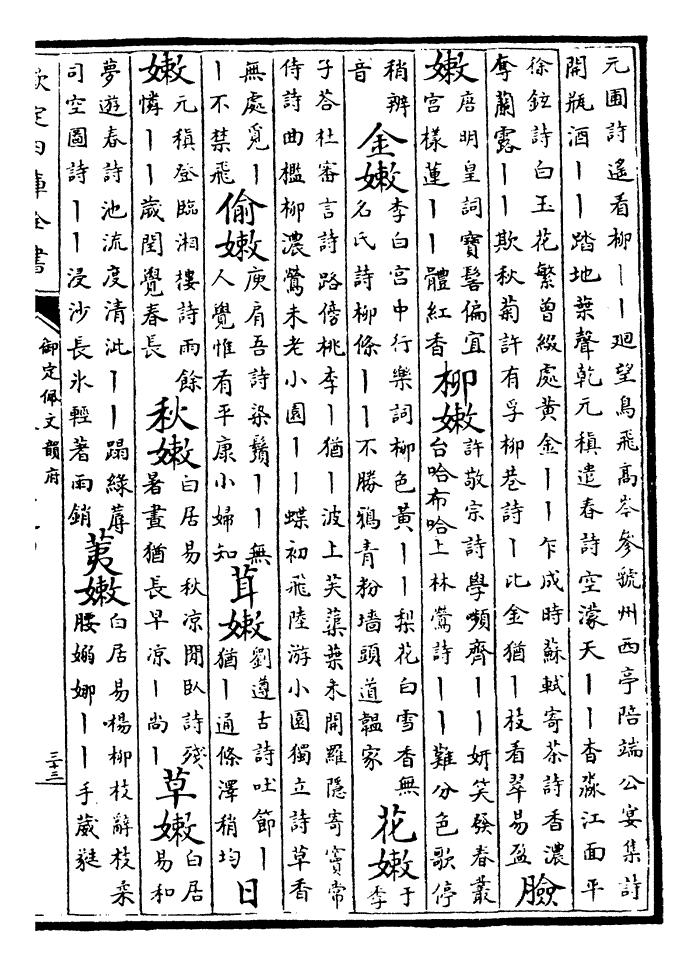 元圃詩遙看柳丨丨廻望鳥飛高岑參虢州西亭陪端公宴集詩
開瓶酒丨丨踏地葉聲乾元稹遣春詩空濛天丨丨杳淼江面平
徐鉉詩白玉花繁曾綴處黃金丨丨乍成時蘇軾寄茶詩香濃
奪蘭露丨丨欺秋菊許有孚柳巷詩丨比金猶丨枝看翠易盈
臉
嫩
唐明皇詞寶髻偏宜
宮樣蓮丨丨體紅香
柳嫩
許敬宗詩學嚬齊丨丨妍笑發春叢
台哈布哈上林鶯詩丨丨難分色歌停
稍辨
音
金嫩
李白宮中行樂詞柳色黃丨丨梨花白雪香無
名氏詩柳條丨丨不勝鴉青粉墻頭道韞家
花嫩
于
李
子荅杜審言詩路傍桃李丨猶丨波上芙蕖葉未開羅隱寄竇常
侍詩曲檻柳濃鶯未老小園丨丨蝶初飛陸游小園獨立詩草香
無處覓丨
丨不禁飛
偷嫩
庾肩吾詩染鬚丨丨無
人覺惟有平康小婦知
茸嫩
劉遵古詩吐節丨
猶丨通條澤稍均
日
嫩
元稹登臨湘樓詩雨餘
憐丨丨歲閏覺春長
秋嫩
白居易秋凉閒臥詩殘
暑晝猶長早凉丨尚丨
草嫩
白居
易和
夢遊春詩池流度清泚丨丨蹋綠蓐
司空圖詩丨丨浸沙長氷輕著雨銷
荑嫩
白居易楊柳枝辭枝柔
腰嫋娜丨丨手葳蕤
欽定四庫全書
御定佩文韻府
三十三